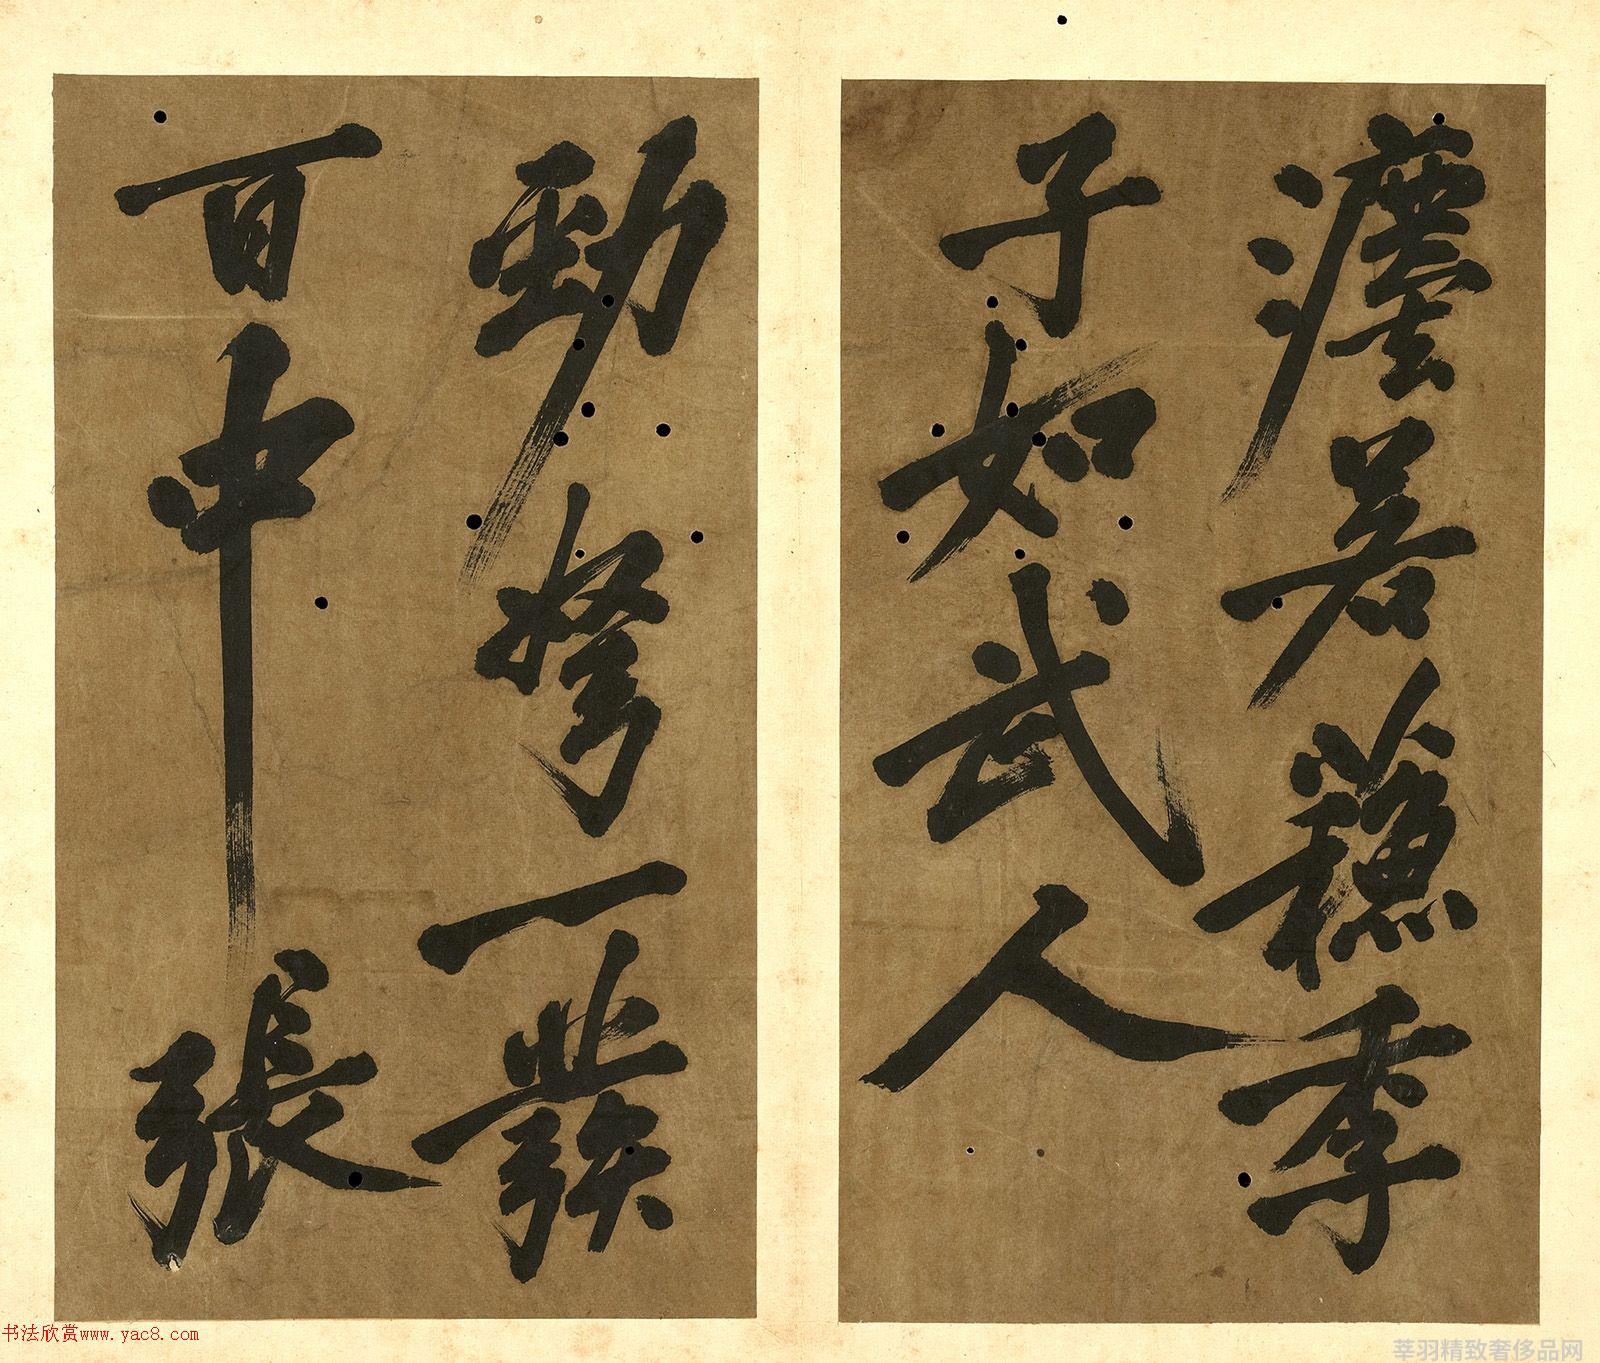 瀍若蘓季
子如武人
勁弩一發
百中 張
书法欣赏www.yac8.com
莘羽精致奢侈品网